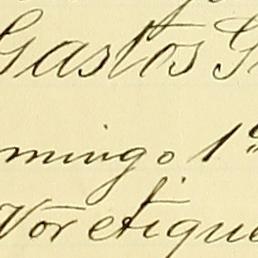 Gastos G
mingo 1º
Voretique